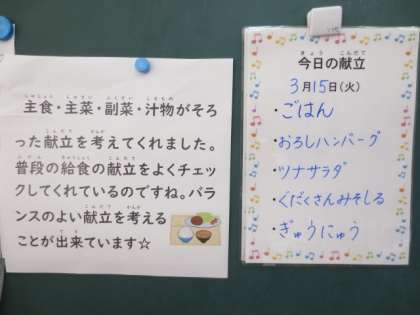 主食・主菜・副菜・汁物がそろ
った献立を考えてくれました。
普段の給食の献立をよくチェッ
クしてくれているのですね。バラ
ンスのよい献立を考える
ことが出来ています☆
今日の献立
3月15日(火)
・ごはん
・おろしハンバーグ
・ツナサラダ
・ぐだくさんみそしる
・ぎゅうにゅう